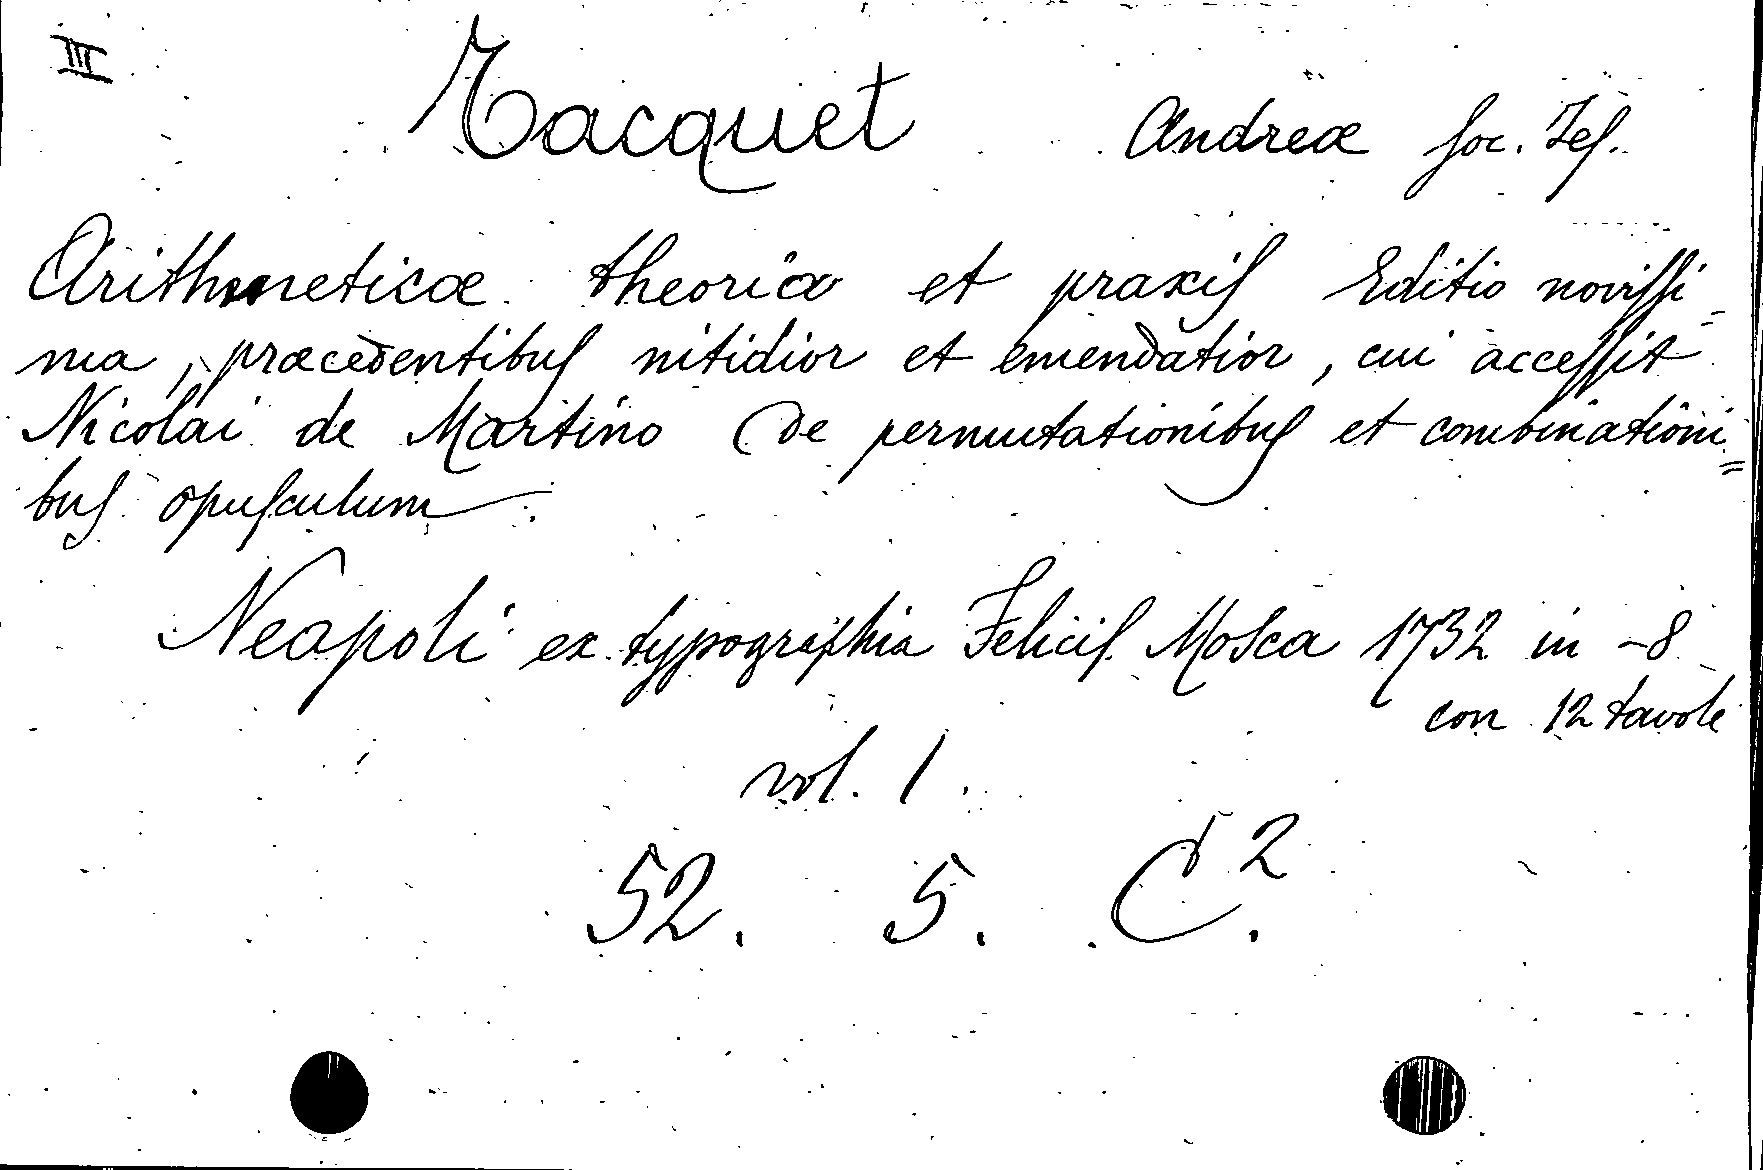 III
Tacquet Andreæ Soc. Jes.
Arithmeticæ theoria et praxis Editio novissi=
ma, præcedentibus nitidior et emendatior, cui accessit
Nicolai de Martino De permutationibus et combinationi=
bus opusculum
Neapoli ex typographia Felicis Mosca 1732 in -8
con 12 tavole
vol. 1.
52. 5. C².